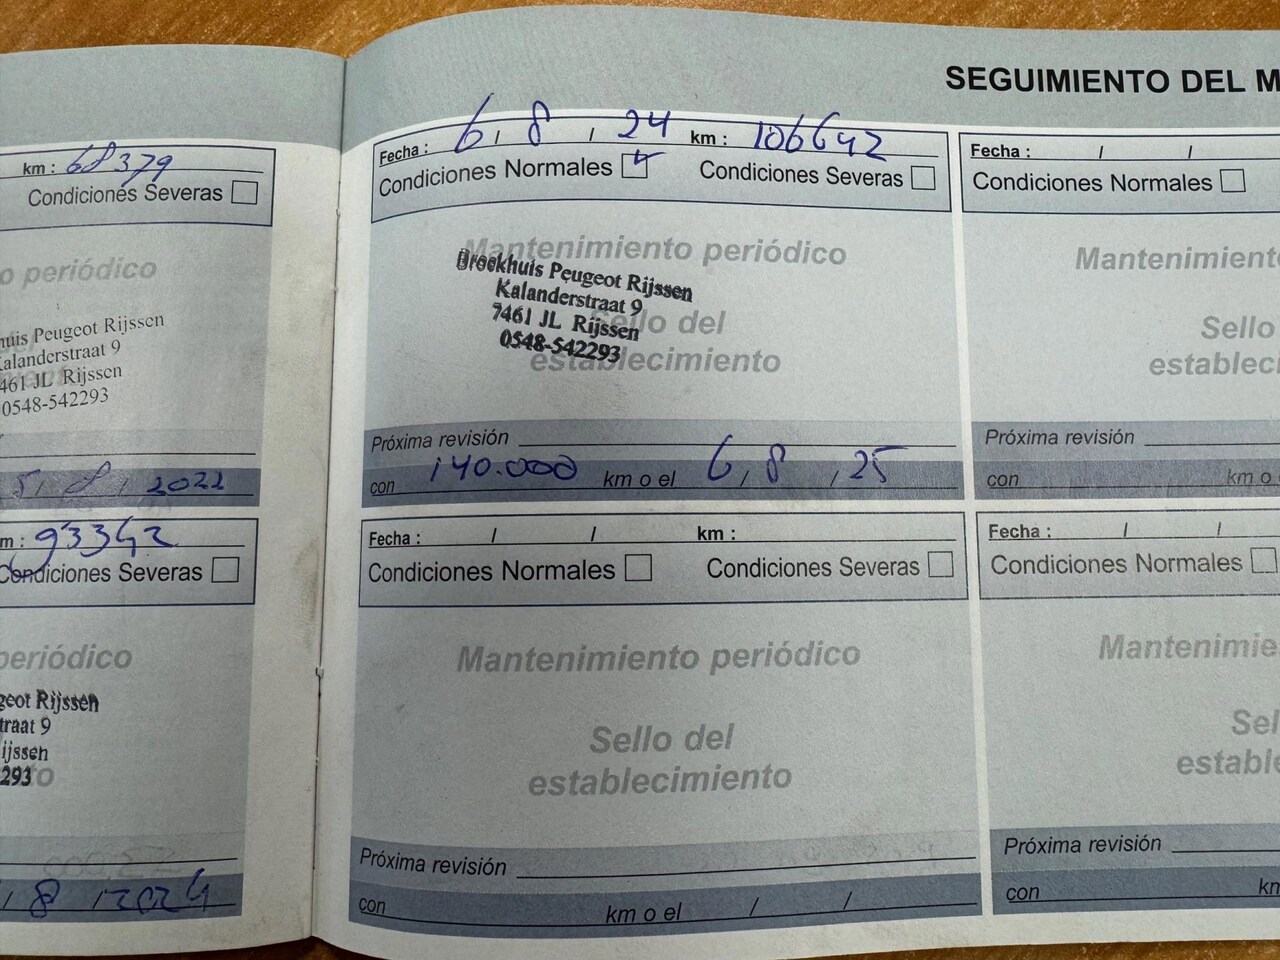 SEGUIMIENTO DEL M
km : 68379
Condiciones Severas
o periódico
huis Peugeot Rijssen
Kalanderstraat 9
7461 JL Rijssen
0548-542293
5 / 8 / 2022
m : 93342
Condiciones Severas
periódico
geot Rijssen
traat 9
ijssen
293
/ 8 / 2024
Fecha : 6 / 8 / 24 km : 106642
Condiciones Normales Condiciones Severas
Mantenimiento periódico
Broekhuis Peugeot Rijssen
Kalanderstraat 9
7461 JL Rijssen
0548-542293
Sello del
establecimiento
Próxima revisión
con 140.000 km o el 6 / 8 / 25
Fecha : / / km :
Condiciones Normales Condiciones Severas
Mantenimiento periódico
Sello del
establecimiento
Próxima revisión
con km o el / /
Fecha : / /
Condiciones Normales
Mantenimient
Sello
estableci
Próxima revisión
con km o
Fecha : / /
Condiciones Normales
Mantenimie
Sel
establ
Próxima revisión
con km